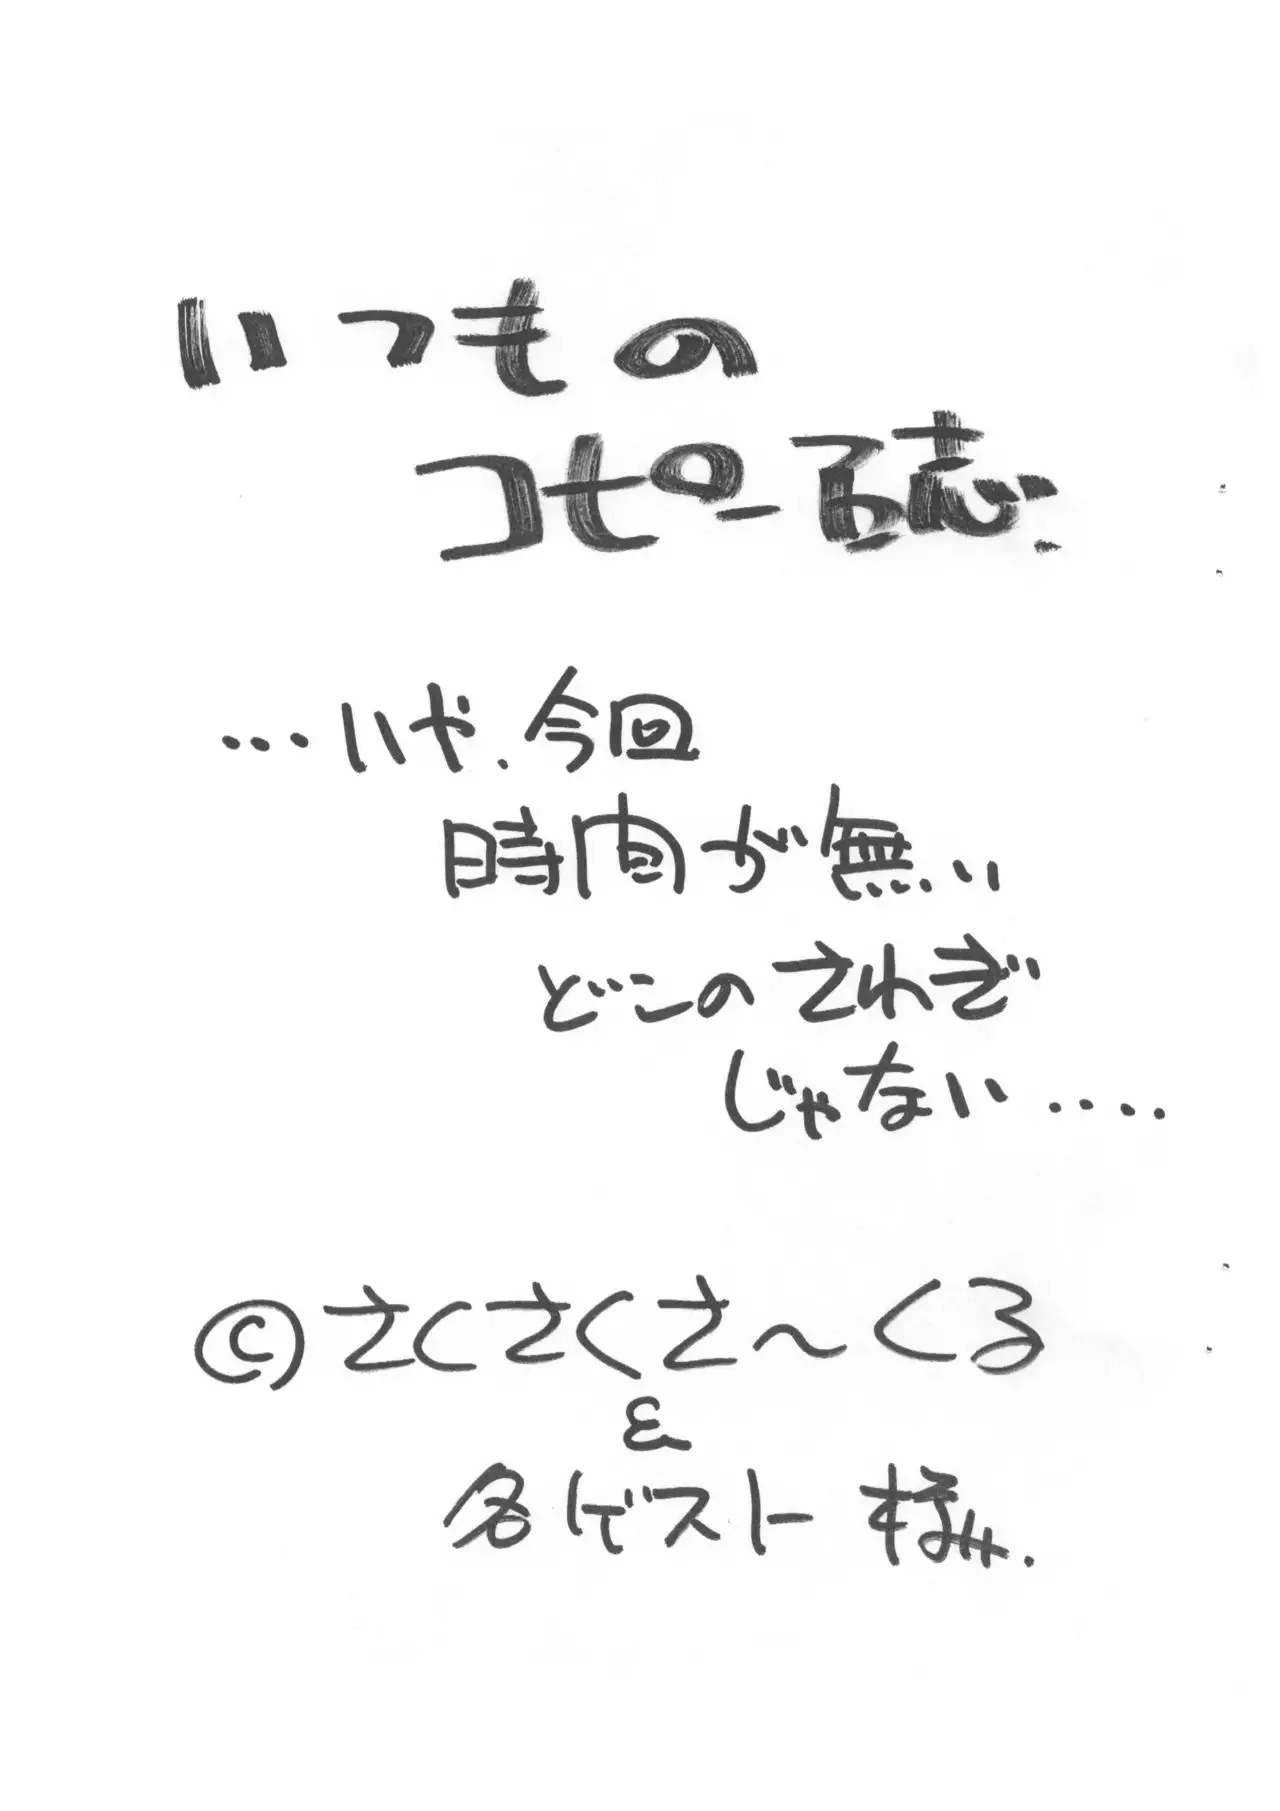 いつもの
コピー誌.
…いや、今回
時間が無い
どこのさわぎ
じゃない‥‥
©さくさくさ～くる
&
各ゲスト様.